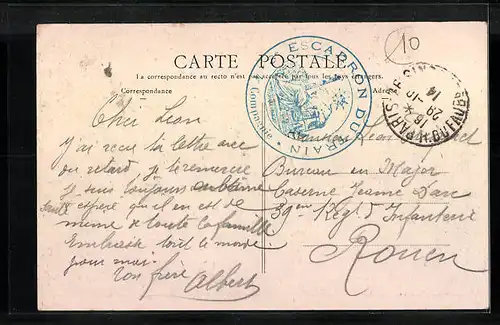 10
CARTE POSTALE
La correspondance au recto n'est pas acceptée par tous les pays étrangers.
Correspondance
ESCADRON DU TRAIN
PARIS
14
Cher Léon
J'ai reçu ta lettre avec
du retard, je te remercie
Je suis toujours en bonne
santé espère qu'il en est de
meme de toute la famille
Embrasse tout le monde
pour moi.
Ton frère Albert
Monsieur Léon
Bureau du Major
Caserne Jeanne D'arc
39em Régt d'Infanterie
Rouen